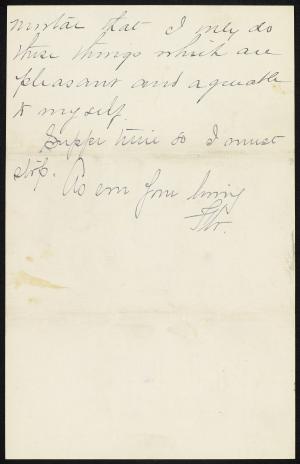 that I only do
these things which are
pleasant and agreeable
to myself.
Supper time so I must
stop. As ever your loving